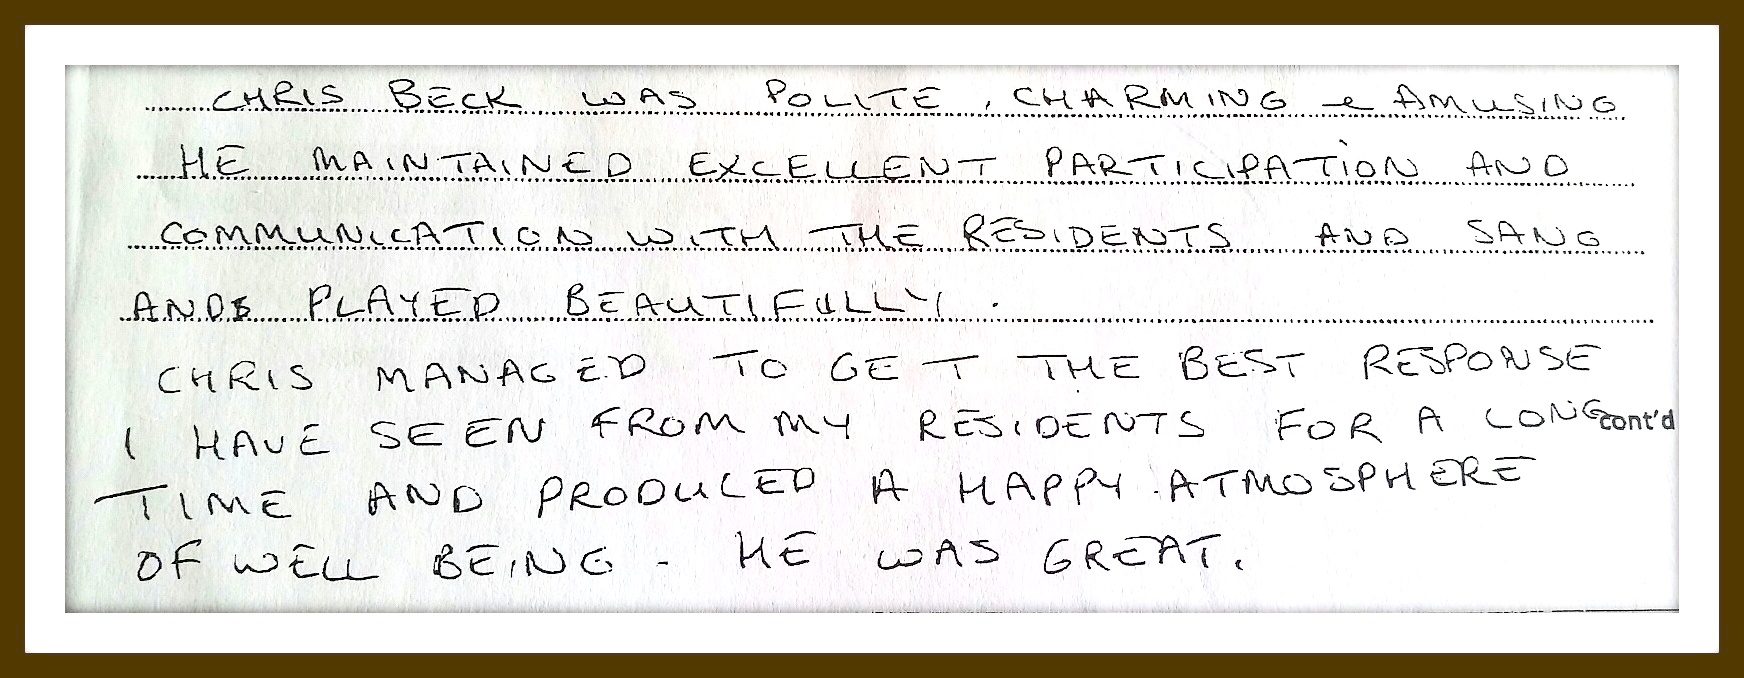 CHRIS BECK WAS POLITE, CHARMING & AMUSING
HE MAINTAINED EXCELLENT PARTICIPATION AND
COMMUNICATION WITH THE RESIDENTS AND SANG
AND PLAYED BEAUTIFULLY.
CHRIS MANAGED TO GET THE BEST RESPONSE
I HAVE SEEN FROM MY RESIDENTS FOR A LONG cont'd
TIME AND PRODUCED A HAPPY ATMOSPHERE
OF WELL BEING - HE WAS GREAT.